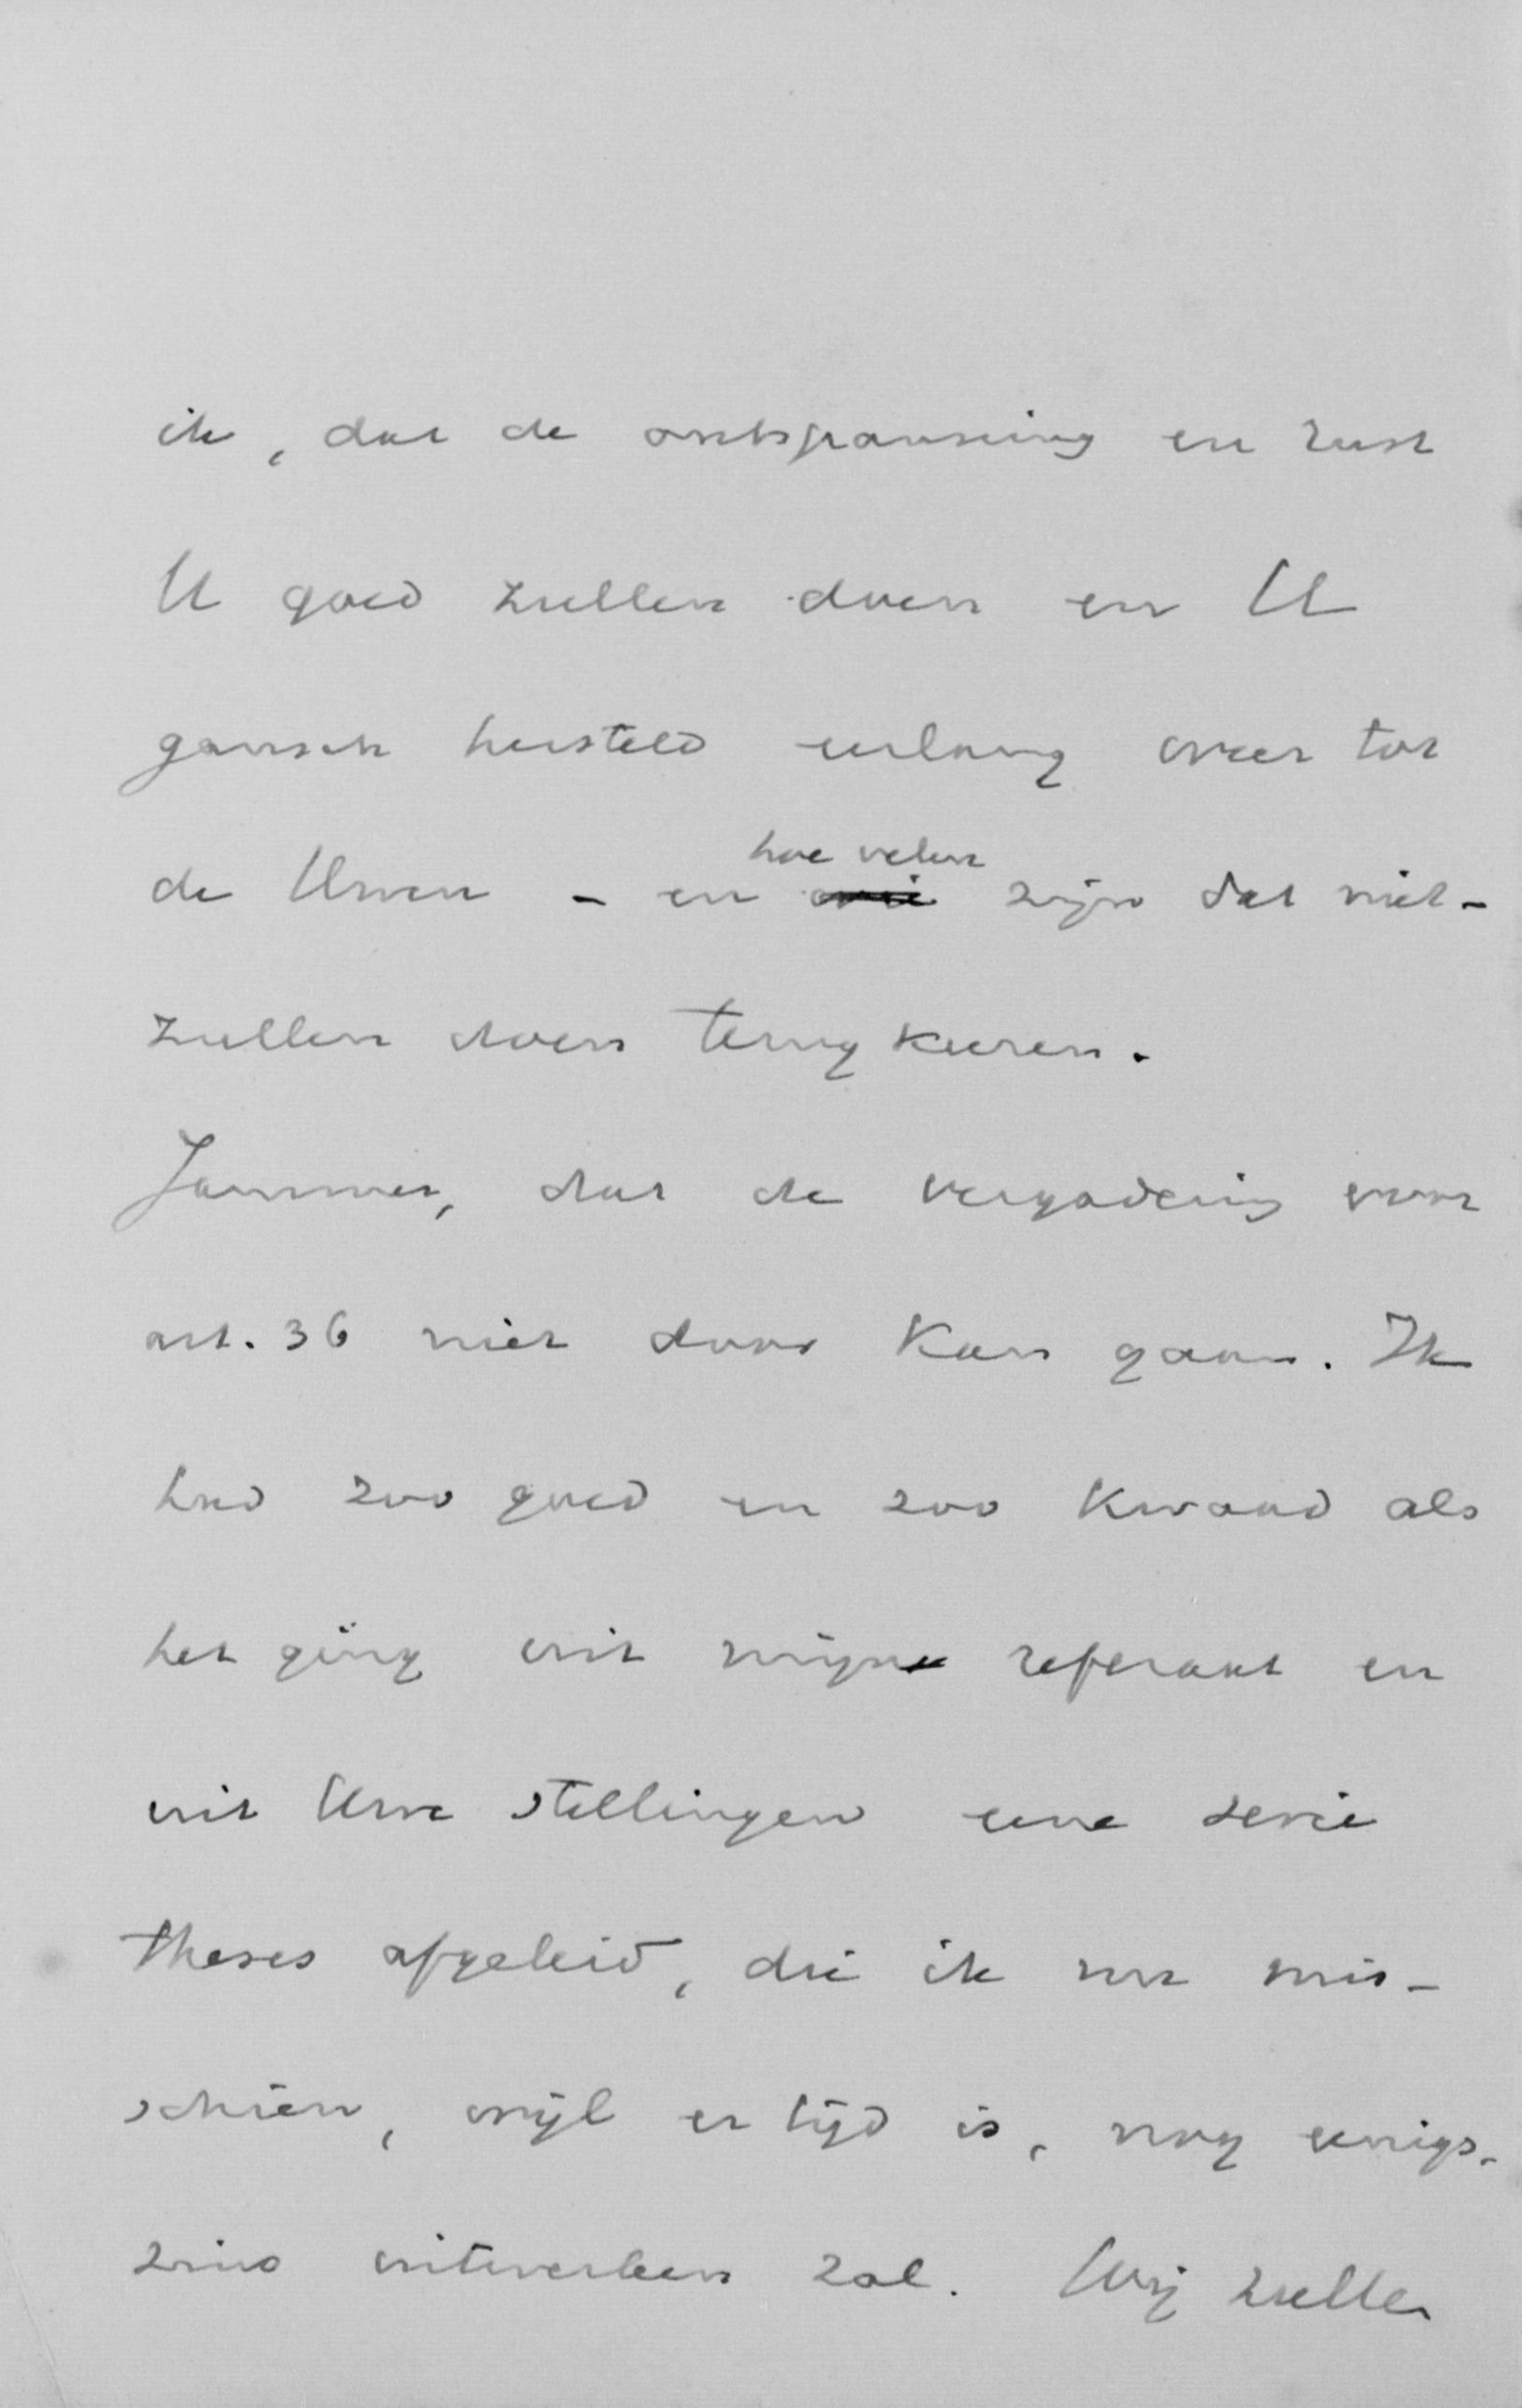 ik, dat de ontspanning en rust
U goed zullen doen en U
gansch hersteld eerlang weer tot
de Uwen – en hoe velen zijn dat niet –
zullen doen terugkeeren.
Jammer, dat de vergadering voor
art. 36 niet door kan gaan. Ik
had zoo goed en zoo kwaad als
het ging uit mijn referaat en
uit Uwe stellingen eene serie
theses afgeleid, die ik nu mis-
schien, wijl er tijd is, nog eenigs-
zins uitwerken zal. Wij zullen